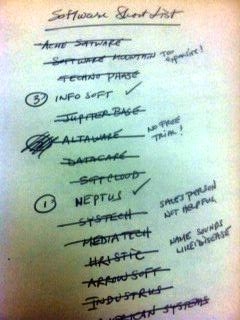 Software Short List
ACME SOFTWARE
SOFTWARE MOUNTAIN TOO EXPENSIVE!
TECHNO PHASE
3 INFO SOFT ✓
JUPITER BASE
ALTAWARE NO FREE TRIAL!
DATACARE
SOFTCLOUD
1 NEPTUS ✓ SALES PERSON NOT HELPFUL
SYSTECH
MEDIATECH NAME SOUNDS LIKE DISEASE
HRISTIC
ARROWSOFT
INDUSTRUS
SYSTEMS